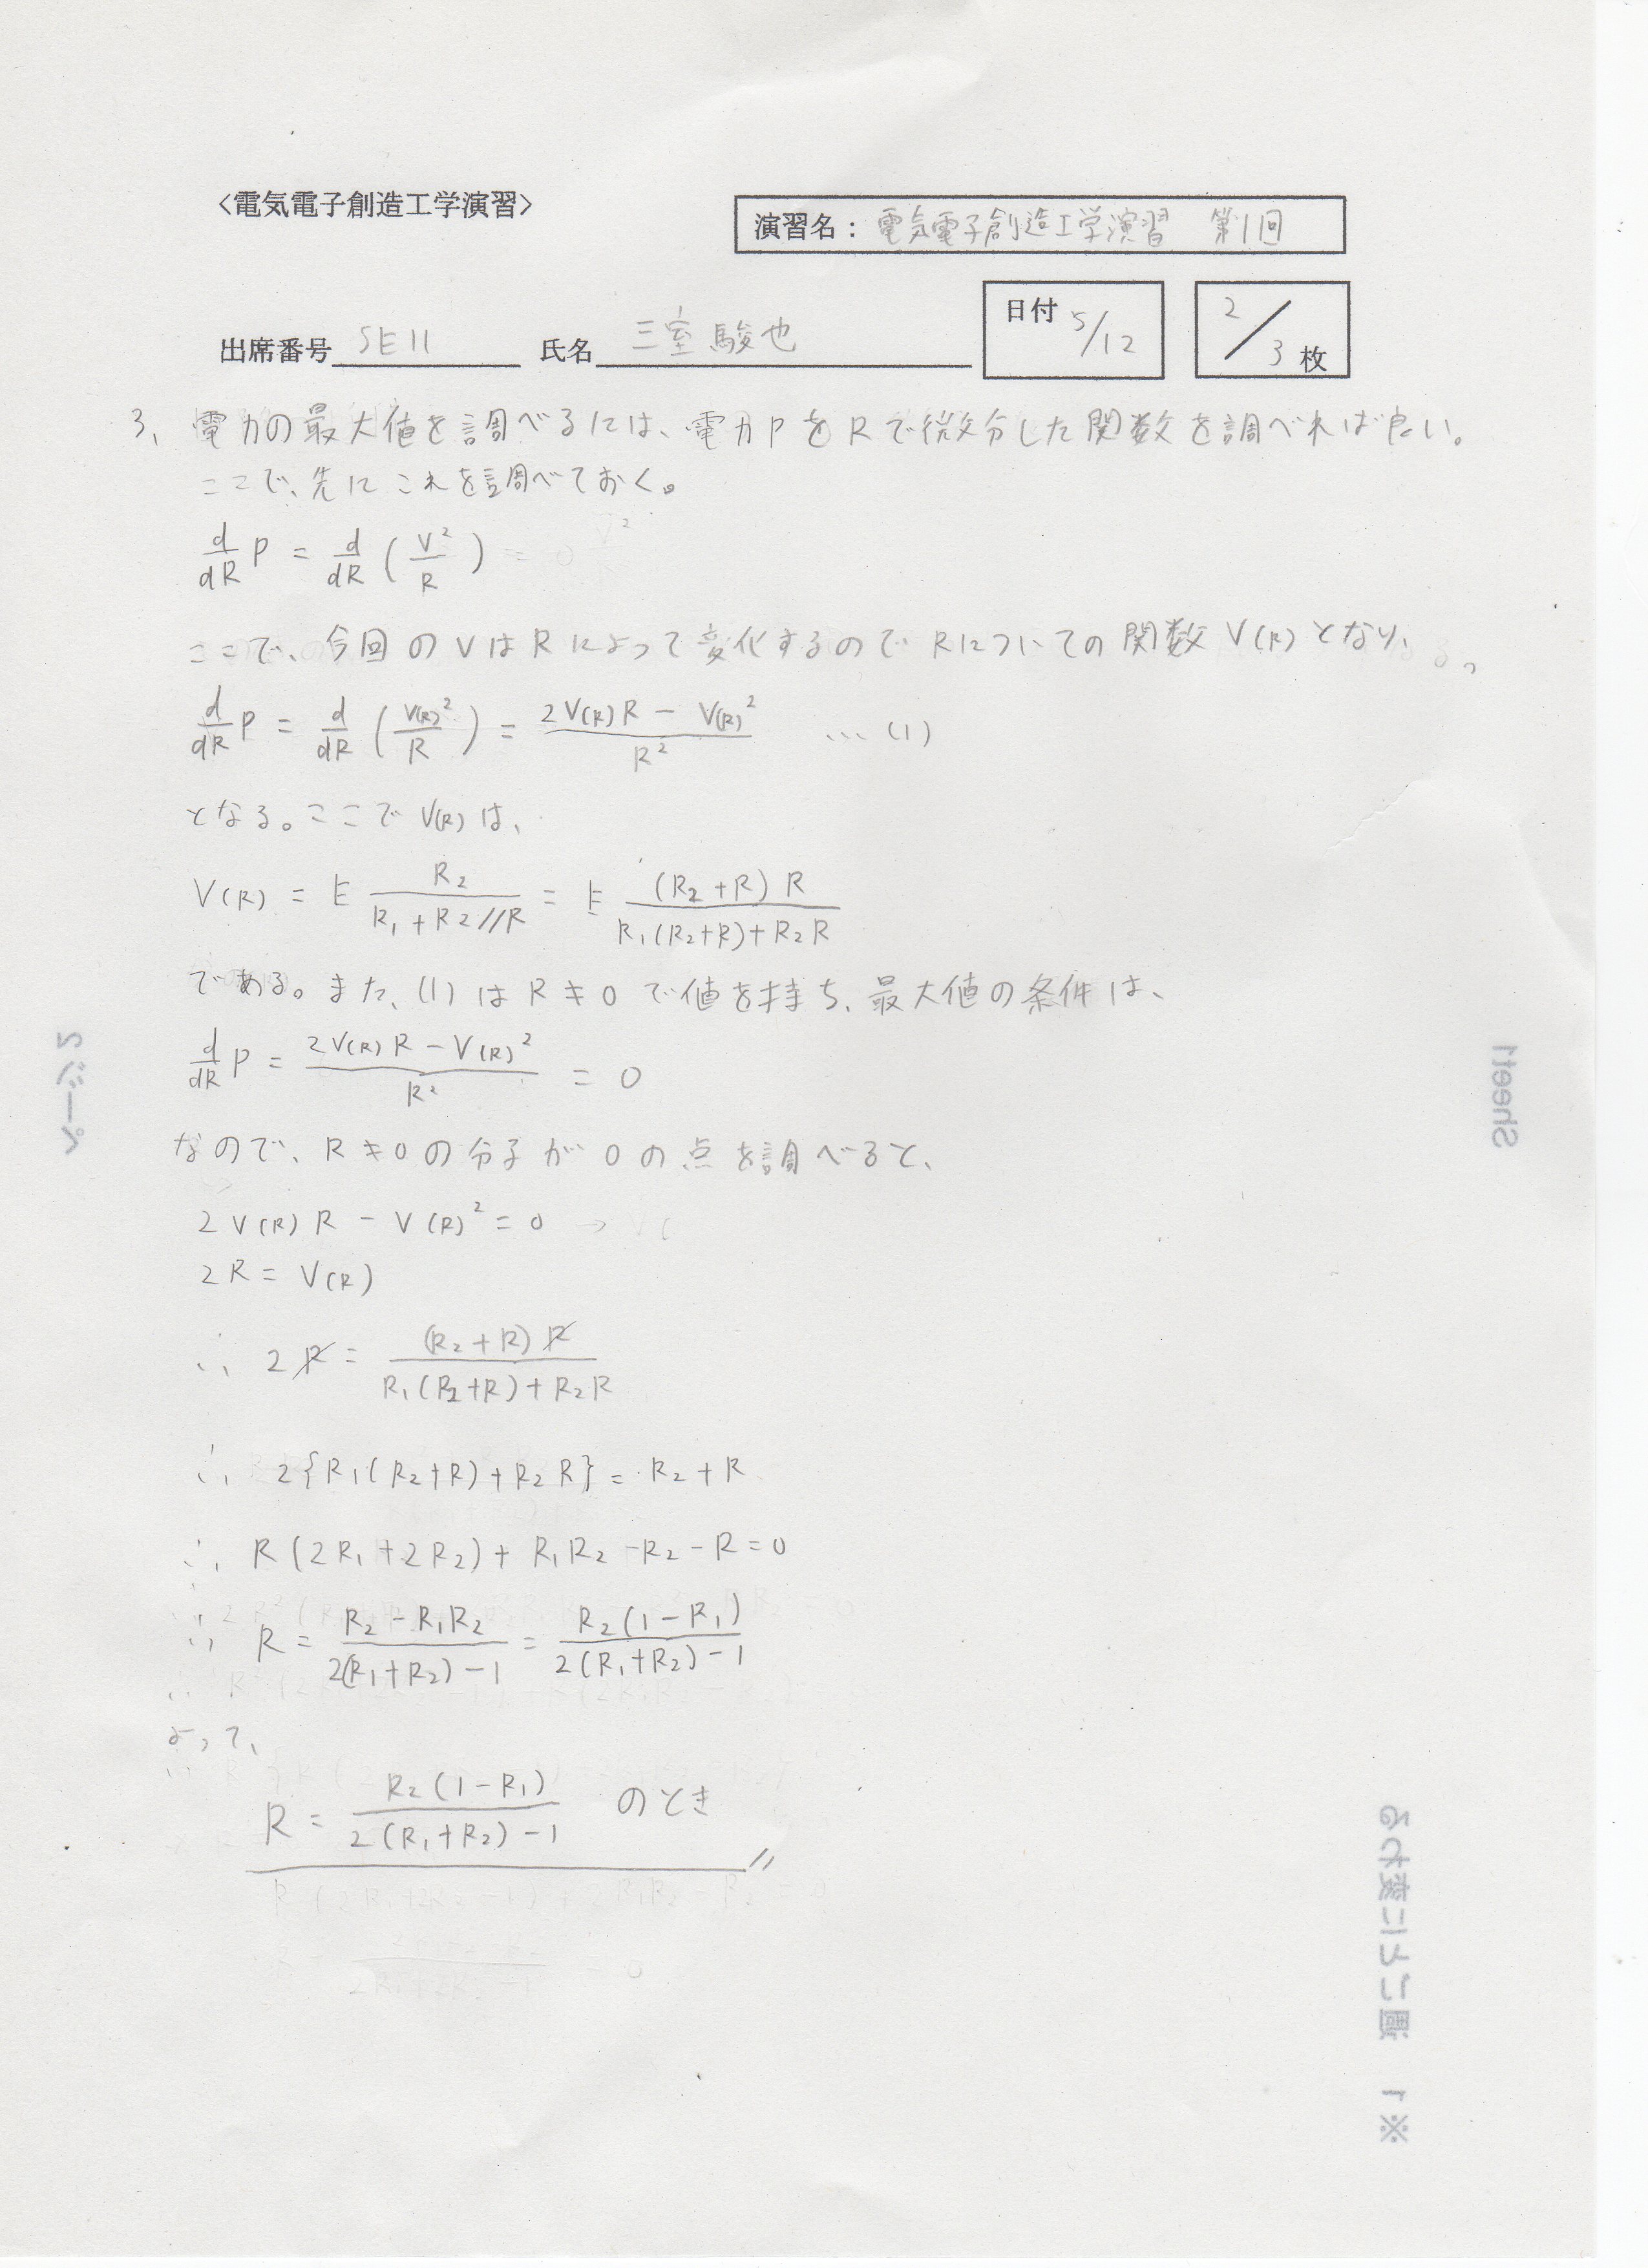 <電気電子創造工学演習>
演習名： 電気電子創造工学演習 第1回
出席番号 5E11 氏名 三室 駿也 日付 5/12 2/3 枚
3、電力の最大値を調べるには、電力PをRで微分した関数を調べれば良い。
ここで、先にこれを調べておく。
d/dR P = d/dR (V²/R)
ここで、今回のVはRによって変化するのでRについての関数V(R)となり、
d/dR P = d/dR (V(R)²/R) = (2V(R)R − V(R)²)/R² … (1)
となる。ここでV(R)は、
V(R) = E R₂/(R₁+R₂//R) = E (R₂+R)R/(R₁(R₂+R)+R₂R)
である。また、(1)はR≠0で値を持ち、最大値の条件は、
d/dR P = (2V(R)R − V(R)²)/R² = 0
なので、R≠0の分子が0の点を調べると、
2V(R)R − V(R)² = 0
2R = V(R)
∴ 2R = (R₂+R)R/(R₁(R₂+R)+R₂R)
∴ 2{R₁(R₂+R)+R₂R} = R₂+R
∴ R(2R₁+2R₂)+R₁R₂−R₂−R=0
∴ R = (R₂−R₁R₂)/(2(R₁+R₂)−1) = R₂(1−R₁)/(2(R₁+R₂)−1)
よって、
R = R₂(1−R₁)/(2(R₁+R₂)−1) のとき
Sheet1
2 ページ